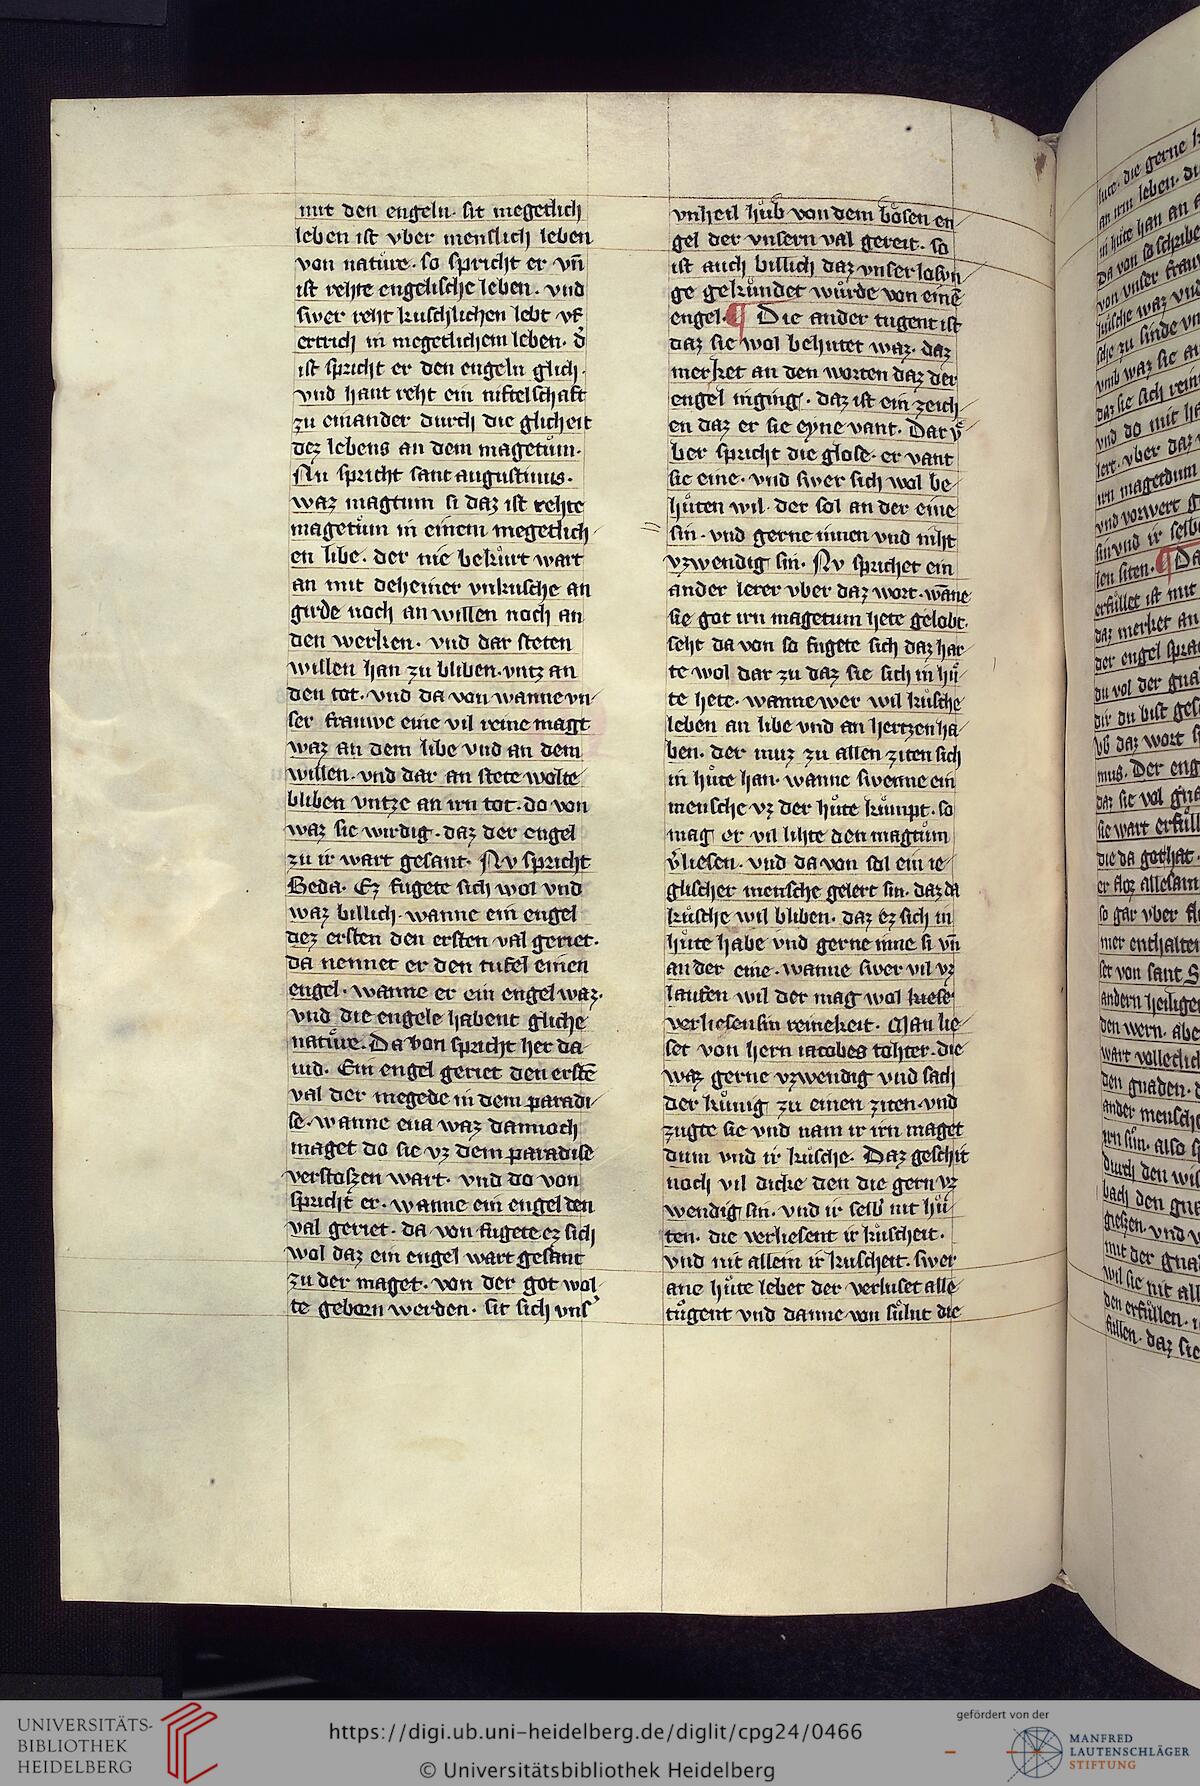 mit den engeln · sit megetlich
leben ist vber menslich leben
von natu̍re · so spricht er vn̄
ist rehte engelische leben · vnd
swer reht kuschlichen lebt vf
ertrich in megetlichem leben · d̓
ist spricht er den engeln glich ·
vnd hant reht ein niftelschaft
zu einander durch die glicheit
dez lebens an dem magetům ·
Nu spricht sant augustinus ·
waz magtum si daz ist rehte
magetům in einem megetlich
en libe · der nie bekůrt wart
an mit deheiner vnkusche an
girde noch an willen noch an
den werken · vnd dar steten
willen han zu bliben · vntz an
den tot · vnd da von wanne vn
ser frauwe eine vil reine magt
waz an dem libe vnd an dem
willen · vnd dar an stete wolte
bliben vntze an irn tot · do von
waz sie wirdig · daz der engel
zu ir wart gesant · Nv spricht
Beda · Ez fugete sich wol vnd
waz billich · wanne ein engel
dez ersten den ersten val geriet ·
da nennet er den tufel einen
engel · wanne er ein engel waz ·
vnd die engele habent gliche
natůre · Da von spricht her da
uid · Ein engel geriet den erstē
val der megede in dem paradi
se · wanne eua waz dannoch
maget do sie vz dem paradise
verstoszen wart · vnd do von
spricht er · wanne ein engel den
val geriet · da von fugete ez sich
wol daz ein engel wart gesant
zu der maget · von der got wol
te geborn werden · sit sich vns̓
vnheil hůb von dem bösen en
gel der vnsern val gereit · so
ist auch billich daz vnser losun
ge gekůndet wůrde von einē
engel · ¶ Die ander tugent ist
daz sie wol behutet waz · daz
merket an den worten daz der
engel inging · daz ist ein zeich
en daz er sie eyne vant · Dar v̊
ber spricht die glose · er vant
sie eine · vnd swer sich wol be
hůten wil · der sol an der eine
sin · vnd gerne innen vnd niht
vzwendig sin · Nv sprichet ein
ander lerer vber daz wort · wāne
sie got irn magetum hete gelobt ·
seht da von so fugete sich daz har
te wol dar zu daz sie sich in hů
te hete · wanne wer wil kůsche
leben an libe vnd an hertzen ha
ben · der muz zu allen ziten sich
in hůte han · wanne swenne ein
mensche vz der hůte kůmpt · so
mag er vil lihte den magtům
v̓liesen · vnd da von sol ein ie
glischer mensche gelert sin · daz da
kůsche wil bliben · daz ez sich in
hůte habe vnd gerne inne si vn̄
an der eine · wanne swer vil vz
laufen wil der mag wol kiese
verliesen sin reinekeit · Man lie
set von hern iacobes tohter · die
waz gerne vzwendig vnd sach
der kůnig zu einen ziten · vnd
zugte sie vnd nam ir irn maget
dum vnd ir kůsche · Daz geschit
noch vil dicke den die gern vz
wendig sin · vnd ir selb̓ nit hů
ten · die verliesent ir kůscheit ·
vnd nit allein ir kuscheit · swer
ane hůte lebet der verluset alle
tůgent vnd danne von sůlnt die
UNIVERSITÄTS-
BIBLIOTHEK
HEIDELBERG
https://digi.ub.uni-heidelberg.de/diglit/cpg24/0466
© Universitätsbibliothek Heidelberg
gefördert von der
MANFRED
LAUTENSCHLÄGER
STIFTUNG